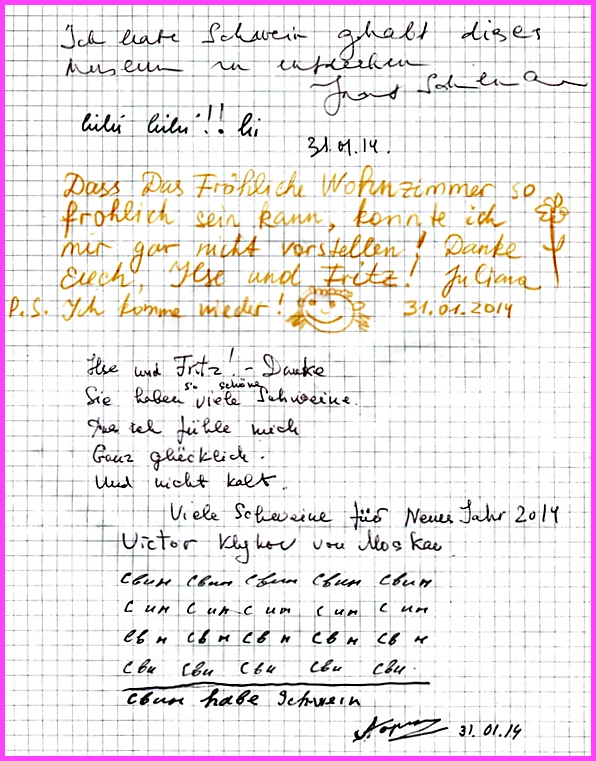 Ich habe Schwein gehabt dieses
Museum zu entdecken
hihi hihi!! hi
31.01.14.
Dass Das Fröhliche Wohnzimmer so
fröhlich sein kann, konnte ich
mir gar nicht vorstellen! Danke
Euch, Ilse und Fritz! Juliana
P.S. Ich komme wieder! 31.01.2014
Ilse und Fritz! - Danke
Sie haben so schöne viele Schweine.
Das ich fühle mich
Ganz glücklich.
Und nicht kalt.
Viele Schweine für Neues Jahr 2014
Victor von Moskau
свин свин свин свин свин
с ин с ин с ин с ин с ин
св н св н св н св н св н
сви сви сви сви сви.
свин habe Schwein
31.01.14